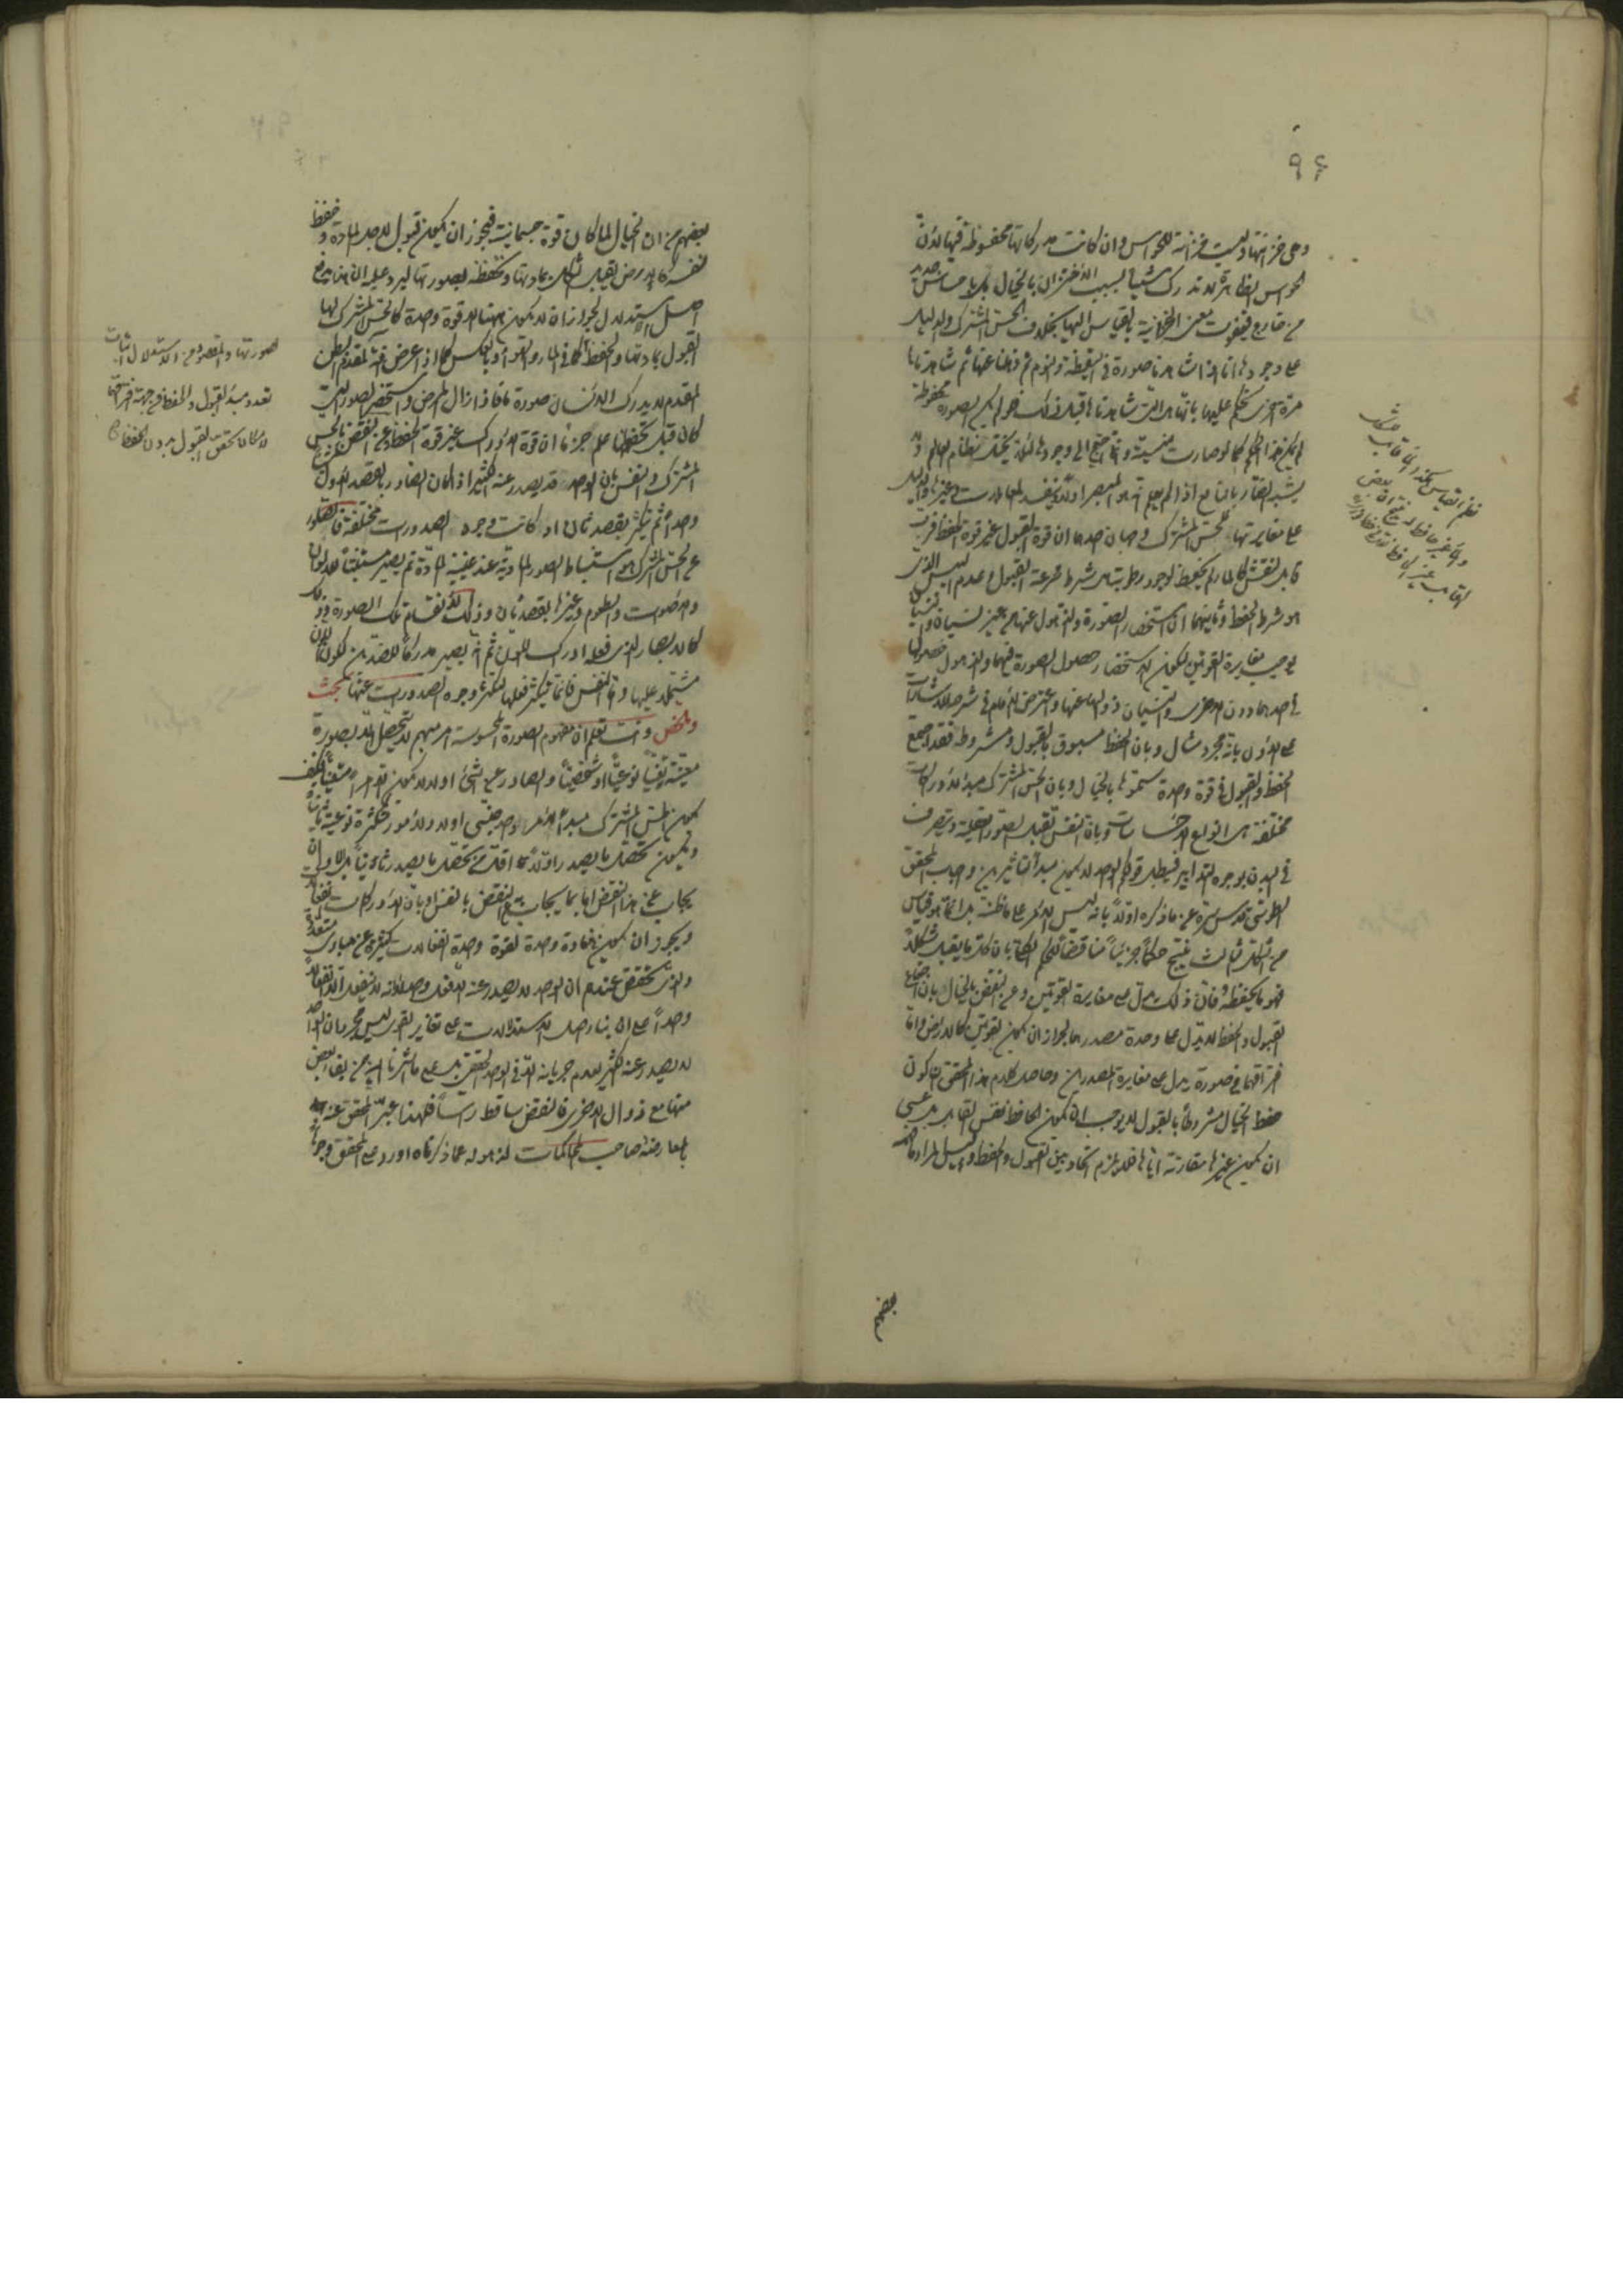 ٩٤
وهي خزانتها وليست خزانة للحواس وان كانت مدركاتها محفوظة فيها لان
الحواس الظاهرة لا تدرك شيئا بسبب الاختزان بالخيال بل باحساس جديد
من خارج فيفوت معنى الخزانية بالقياس اليها بخلاف الحس المشترك والدليل
على وجودها انا اذا شاهدنا صورة في اليقظة والنوم ثم ذهلنا عنها ثم شاهدناها
مرة اخرى نحكم عليها بانها هي التي شاهدناها قبل ذلك فلو لم يكن الصورة محفوظة
لم يكن هذا الحكم كما لو صارت منسية وانما احتيج الى وجودها لئلا يختل نظام العالم ولا
يشتبه الضار بالنافع اذا لم يعلم انه هو المبصر اولا ويفسد المعاملات وغيرها والدليل
على مغايرتها للحس المشترك وجهان احدهما ان قوة القبول غير قوة الحفظ فرب
قابل للنقش كالماء لم يحفظ لوجود رطوبة هي شرط سرعة القبول وعدم اليبس الذي
هو شرط الحفظ وثانيهما ان استحضار الصورة والذهول عنها من غير نسيان والنسيان
يوجب مغايرة القوتين ليكون الاستحضار حصول الصورة فيهما والذهول حصولها
في احدهما دون الاخرى والنسيان زوالها عنهما واعترض الامام في شرح الاشارات
على الاول بانه مجرد مثال وبان الحفظ مسبوق بالقبول ومشروط به فقد اجتمع
الحفظ والقبول في قوة واحدة سميتموها بالخيال وبان الحس المشترك مبدأ لادراكات
مختلفة هي انواع الاحساسات وبان النفس تقبل الصور العقلية وتتصرف
في البدن بوجوه التدابير فيبطل قولكم الواحد لا يكون مبدأ لاثرين واجاب المحقق
الطوسي قدس سره عن ما ذكره اولا بانه ليس الامر على ما ظنه بل انما هو قياس
من الشكل الثالث ينتج حكما جزئيا مناقضا للحكم الكلي بان كل ما يقبل شكلا
فهو ما يحفظه فان ذلك يدل على مغايرة القوتين وعن النقض بالخيال بان اجتماع
القبول والحفظ لا يدل على وحدة مصدرهما لجواز ان يكون بقوتين كالارض واما
افتراقهما في صورة يدل على مغايرة المصدرين وحاصل كلام هذا المحقق ان كون
حفظ الخيال مشروطا بالقبول لا يوجب ان يكون الحافظ نفس القابل بل عسى
ان يكون غيرها مقارنة اياها فلا يلزم اتحاد بين القبول والحفظ وليس المراد ما فهمه
بعضهم
بعضهم من ان الخيال لما كان قوة جسمانية فيجوز ان يكون قبوله لاجل المادة وحفظه
لنفسه كالارض يقبل الشكل بمادتها وتحفظه بصورتها ليرد عليه ان هذا يدفع
اصل الاستدلال لجواز ان لا يكون هناك الا قوة واحدة كالحس المشترك لها
القبول بمادتها والحفظ كما في الماء والهواء وبالعكس كما اذا عرض آفة لمقدم البطن
المقدم لا يدرك الانسان صورة ما فاذا زال المرض واستحضر الصور التي
كان قبل تحفظها علم جزما ان قوة الادراك غير قوة الحفظ وعن النقض بالحس
المشترك والنفس بان الواحد قد يصدر عنه الكثير اذا كان الصادر بالقصد الاول
واحدا ثم تكثر بقصد ثان او كانت وجوه الصدورات مختلفة فالصادر
عن الحس المشترك هو استنباط الصور المادية عند غيبة المادة ثم يصير مستثبتا للالوان
والاصوات والطعوم وغيرها بقصد ثان وذلك لانقسام تلك الصورة وذلك
كالابصار الذي فعله ادراك اللون ثم انه يصير مدركا للضدين لكون اللون
مشتملا عليهما واما النفس فانما يتكثر فعلها لتكثر وجوه الصدورات عنها بحث
وملخص وانت تعلم ان مفهوم الصورة المحسوسة امر مبهم لا يتحصل الا بصورة
معينة تعينا نوعيا او شخصيا والصادر عن الشيء اولا لا يكون الا امرا متعينا فكيف
يكون الحس المشترك مبدأ لامر واحد جنسي اولا ولامور متكثرة نوعية ثانيا
ويكون تحصل ما يصدر اولا اقل من تحصل ما يصدر ثانيا
يجاب عن هذا النقض اما بما يجاب عن النقض بالنفس او بان الادراكات انفعالات
ويجوز ان يكون لمادة واحدة لقوة واحدة انفعالات كثيرة عن مبادي متعددة
والذي تحقق عندهم ان الواحد لا يصدر عنه الا فعل واحد لا انه لا ينفعل الا انفعالا
واحدا على ان بناء اصل الاستدلالات على تغاير القوى ليس مجرد ان الواحد
لا يصدر عنه الكثير لعدم جريانه الا في الواحد الحقيقي بل على ما اشرنا اليه من بقاء بعض
منها مع زوال الاخرى فالنقض ساقط رأسا فلهذا عبر المحقق عنه
بالمعارضة صاحب المحاكمات لذهوله عما ذكرناه اورد على المحقق وجوها
لصورتها والمقصود من الاستدلال اثبات
تعدد مبدأ القبول والحفظ من جهة افتراقهما
لامكان تحقق القبول بدون الحفظ